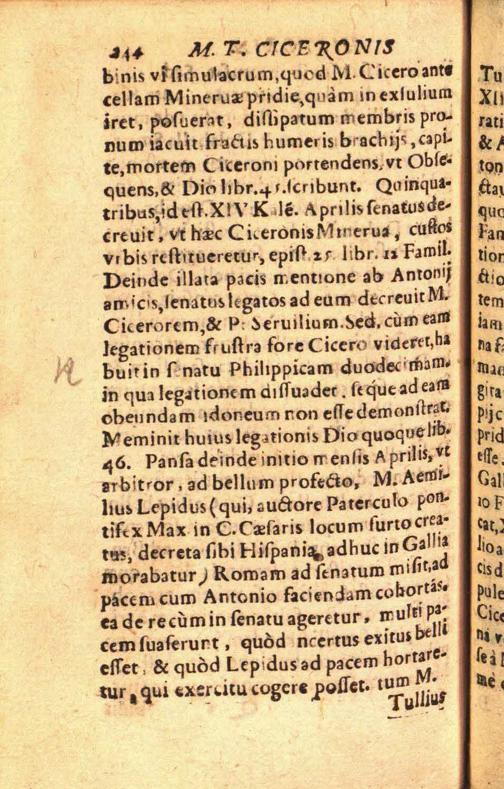 244 M. T. CICERONIS
binis vi simulacrum, quod M. Cicero ante
cellam Mineruæ pridie, quàm in exsulium
iret, posuerat, dissipatum membris pro-
num iacuit fractis humeris brachijs, capi-
te, mortem Ciceroni portendens, vt Obse-
quens, & Dio libr. 45. scribunt. Quinqua-
tribus, id est. XIV Kalẽ. Aprilis senatus de-
creuit, vt hæc Ciceronis Minerua, custos
vrbis restitueretur, epist. 25. libr. 12 Famil.
Deinde illata pacis mentione ab Antonij
amicis, senatus legatos ad eum decreuit M.
Cicerorem, & P. Seruilium. Sed, cùm eam
legationem frustra fore Cicero videret, ha
buit in senatu Philippicam duodecimam.
in qua legationem dissuadet. seque ad eam
obeundam idoneum non esse demonstrat.
Meminit huius legationis Dio quoque lib.
46. Pansa deinde initio mensis Aprilis, vt
arbitror, ad bellum profecto, M. Aemi-
lius Lepidus (qui, auctore Paterculo pon-
tifex Max in C. Cæsaris locum furto crea-
tus, decreta sibi Hispania, adhuc in Gallia
morabatur) Romam ad senatum misit, ad
pacem cum Antonio faciendam cohortãs.
ea de re cùm in senatu ageretur, multi pa-
cem suaserunt, quòd ncertus exitus belli
esset, & quòd Lepidus ad pacem hortare-
tur, qui exercitu cogere posset. tum M.
Tullius